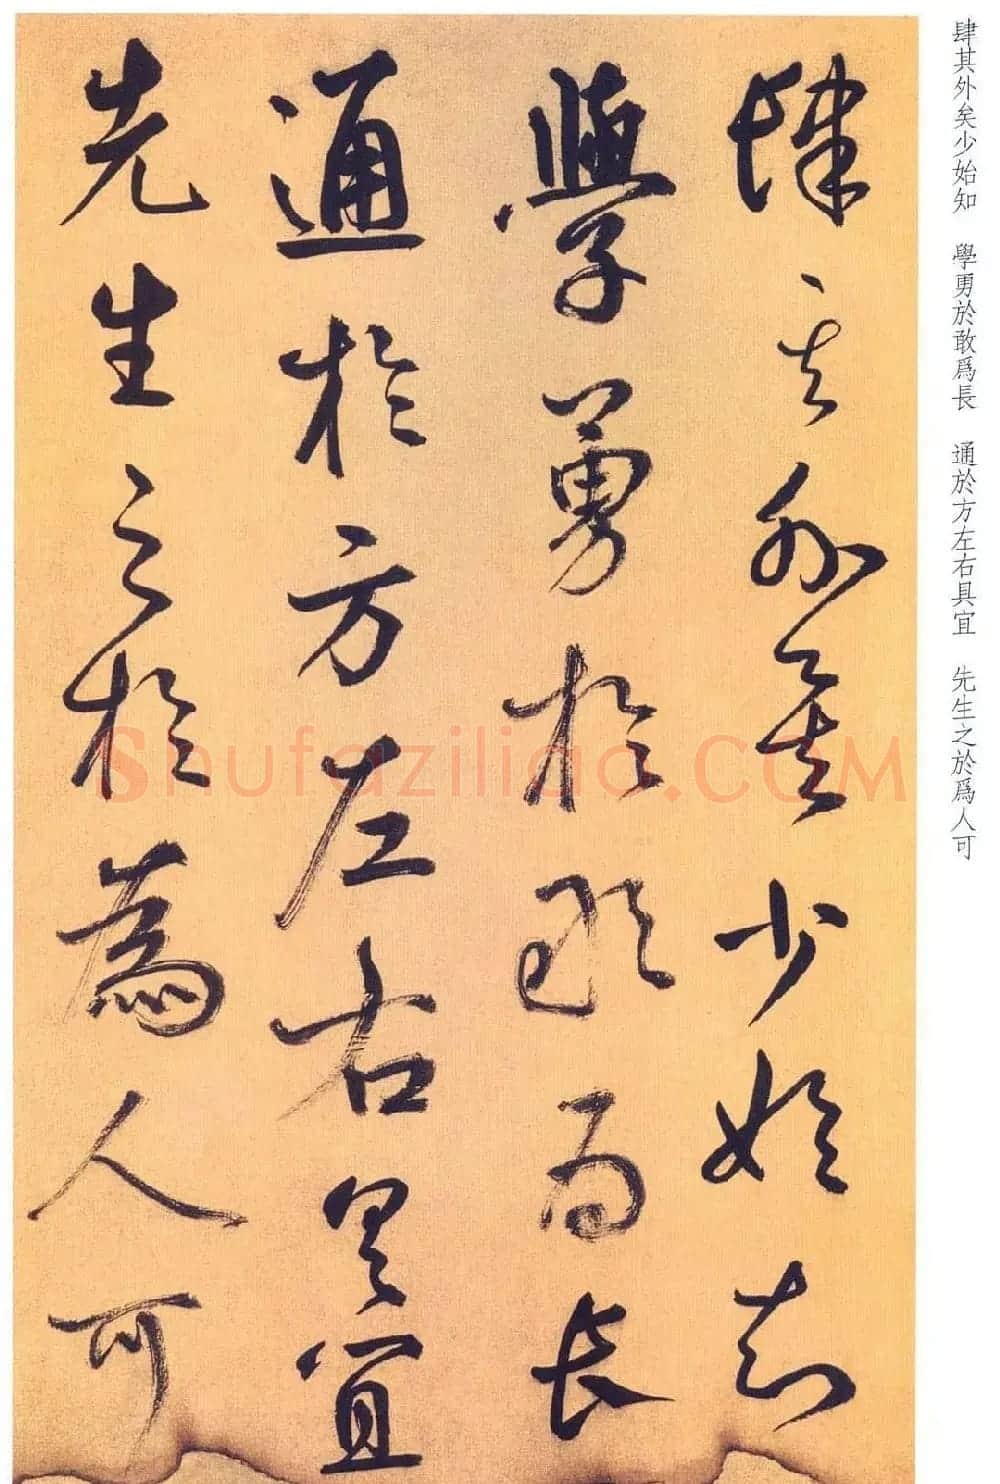 肆其外矣少始知
學勇於敢為長
通於方左右具宜
先生之於為人可
肆其外矣少始知 學勇於敢爲長 通於方左右具宜 先生之於爲人可
Shufaziliao.COM